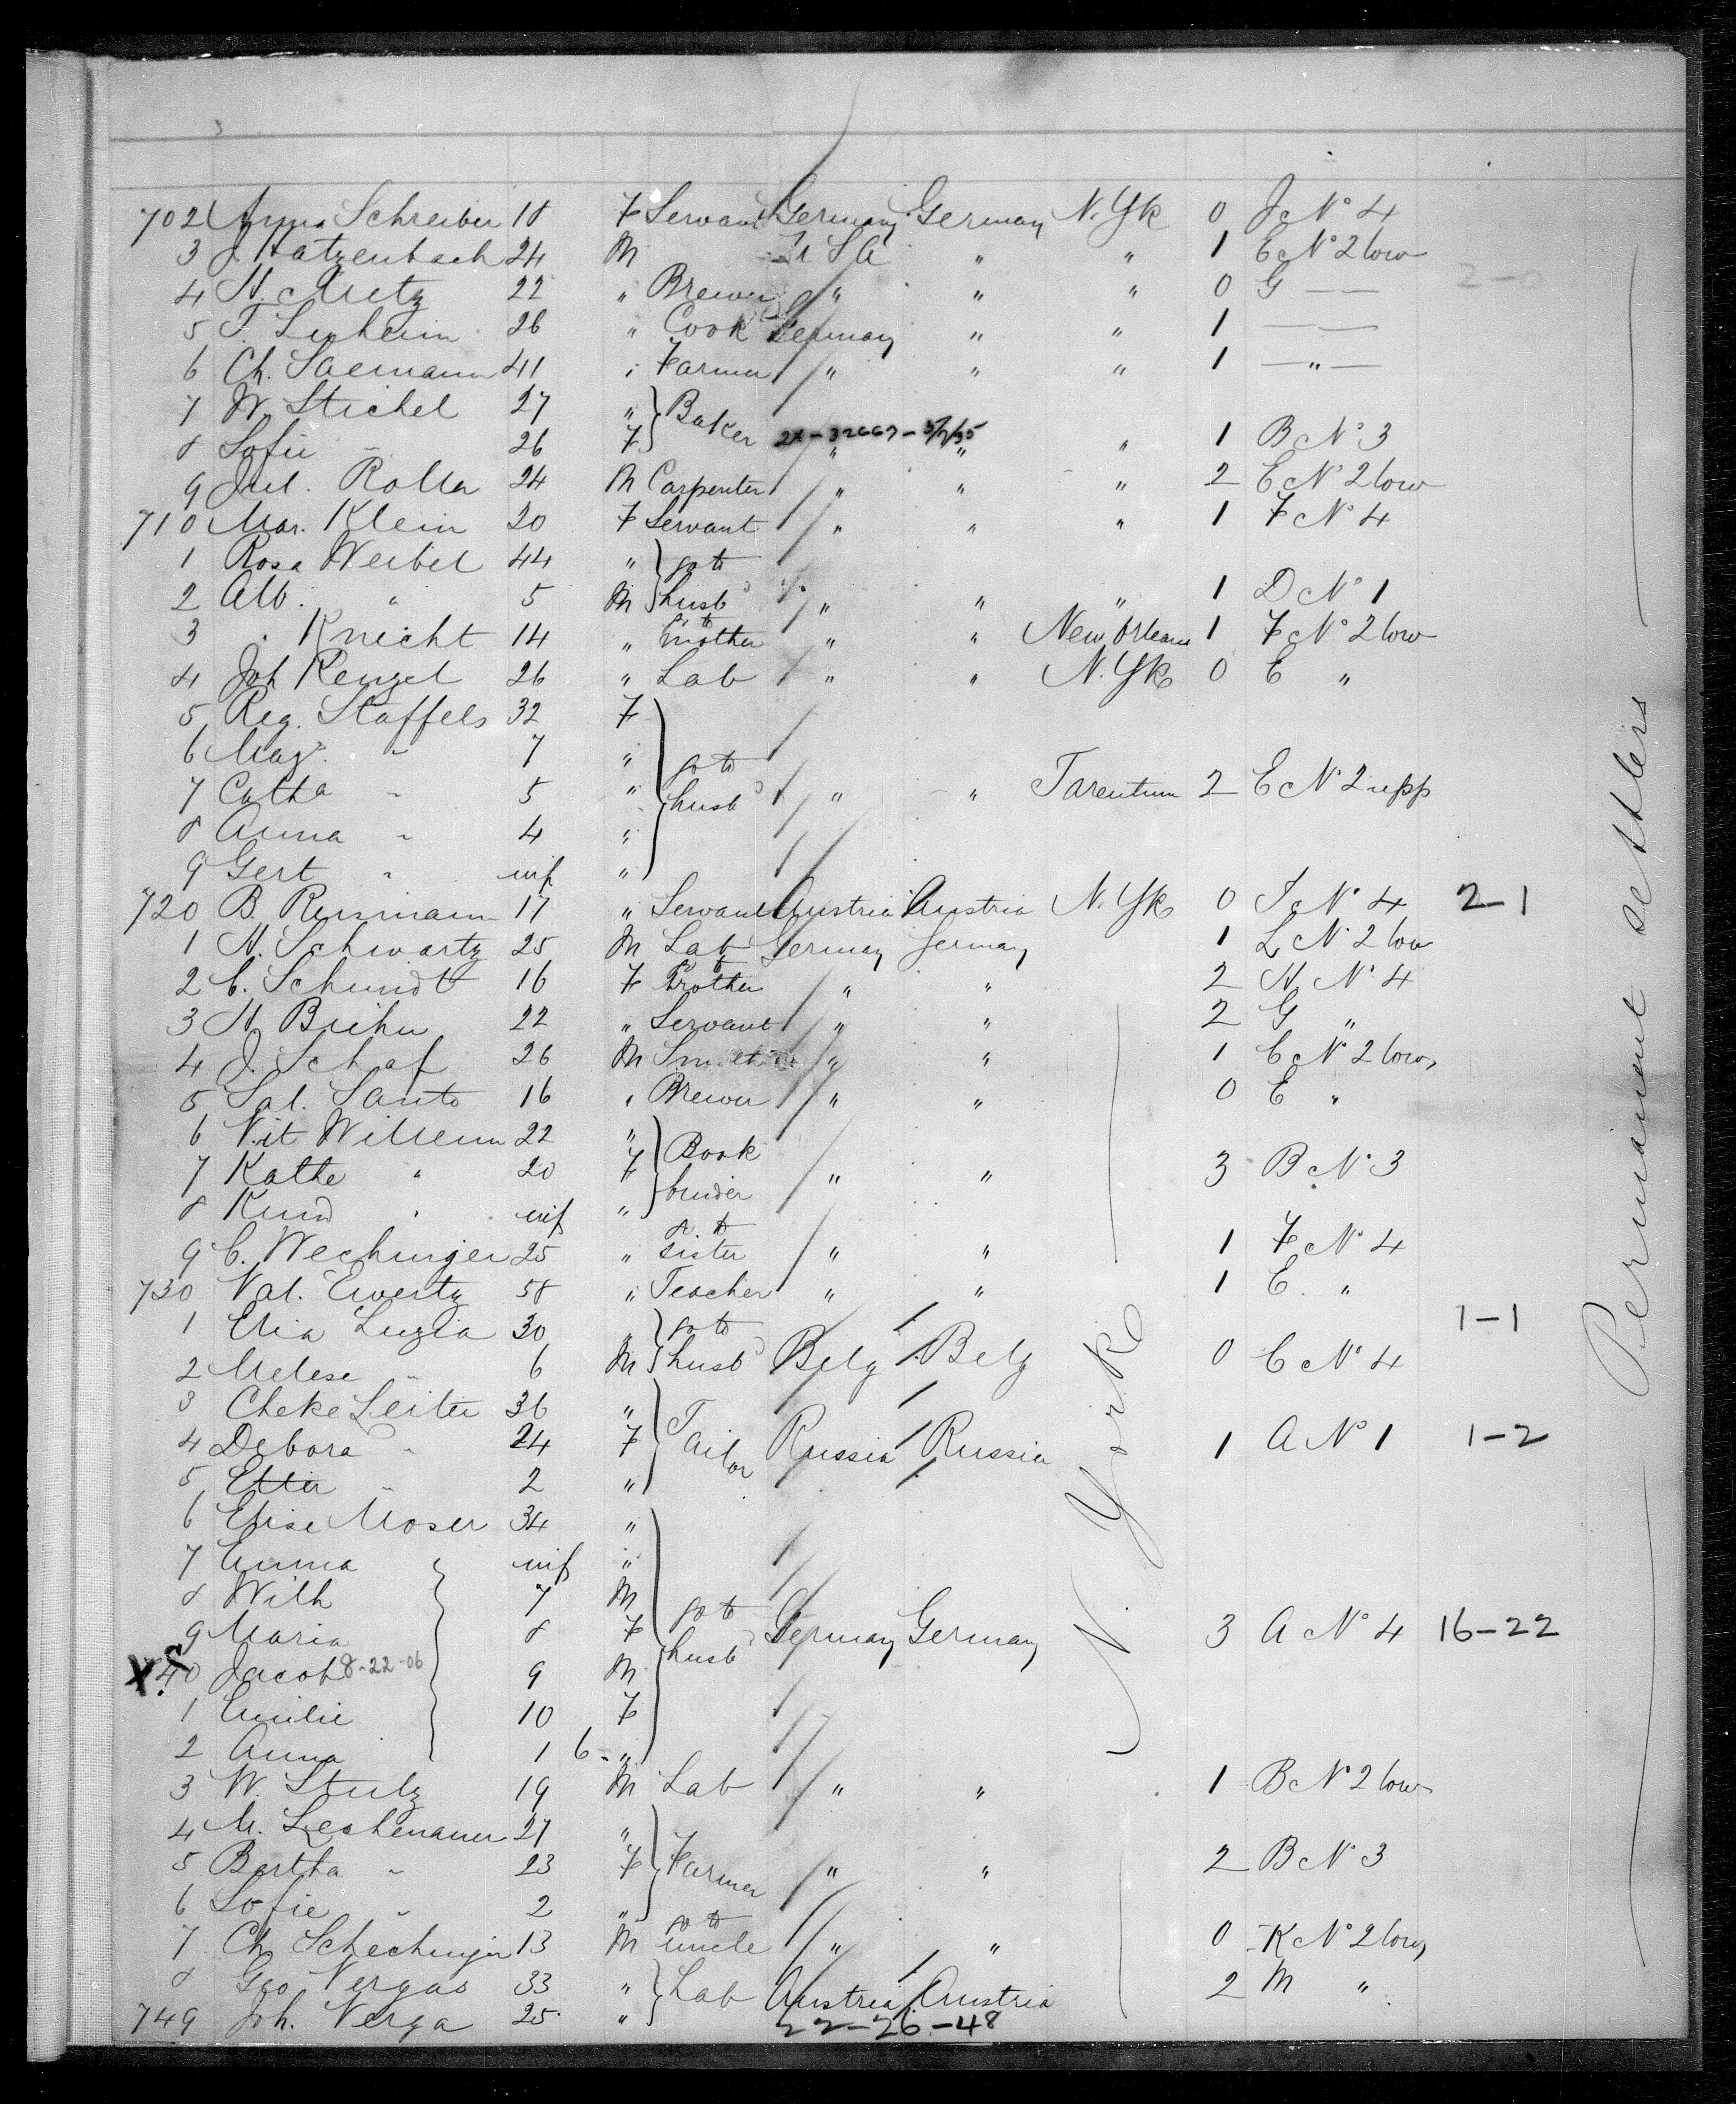 702 Anna Schreiber 18 F Servant Germany Germany N. Yk 0 J No 4
3 J. Katzenbach 24 M U S A " " 1 E No 2 low
4 H. Metz 22 " Brewer " " " 0 G — — 2-0
5 T. 26 " Cook Germany " " 1 — —
6 Ch. Saemann 41 " Farmer " " " 1 — " —
7 W. Stichel 27 "
8 Sofie " 26 F Baker 2X-32667-5/7/35 " " " 1 B No 3
9 Jul. Rolla 24 M Carpenter " " " 2 E No 2 low
710 Mar. Klein 20 F Servant " " " 1 F No 4
1 Rosa Weibel 44 " go to
2 Alb. " 5 M husbd " " " 1 D No 1
3 . Knicht 14 " go to mother " " New Orleans 1 F No 2 low
4 Joh Rengel 26 " Lab " " N. Yk 0 E "
5 Reg. Staffels 32 F
6 Mag. " 7 " go to
7 Catha " 5 " husbd " " Tarentum 2 E No 2 upp
8 Anna " 4 "
9 Gert " inf "
720 B. Reismann 17 " Servant Austria Austria N. Yk 0 J No 4 2-1
1 H. Schwartz 25 M Lab Germany Germany 1 L No 2 low
2 C. Schmidt 16 F go to Brother " " 2 H No 4
3 H. Biehn 22 " Servant " " 2 G "
4 J. Schaf 26 M Smith " " 1 C No 2 low
5 Sal. Santo 16 " Brewer " " 0 E "
6 Vit Willenn 22 "
7 Kathe " 20 F Book binder " " 3 B No 3
8 Kind " inf "
9 C. Wechinger 25 " go to sister " " 1 F No 4
730 Val. Ewertz 58 " Teacher " " 1 E "
1 Elia Luzia 30 " go to 1-1
2 Melese " 6 M husbd Belg Belg 0 C No 4
3 Cheke Leiter 36 "
4 Debora " 24 F Tailor Russia Russia 1 A No 1 1-2
5 Etta " 2 "
6 Elise Moser 34 "
7 Emma " inf "
8 Wilh 7 M go to
9 Maria 8 F husbd Germany Germany N. York 3 A No 4 16-22
X 40 Jacob 8-22-06 9 M
1 Emilie 10 F
2 Anna 1 6 - "
3 W. Stulz 19 M Lab " " 1 B No 2 low
4 M. Leshenauer 27 "
5 Bertha " 23 F Farmer " " 2 B No 3
6 Sofie " 2 "
7 Ch Schechinger 13 M go to uncle " " 0 K No 2 low
8 Geo Vergas 33 " Lab Austria Austria 2 M "
749 Joh. Verga 25 " 22-26-48
Permanent settlers